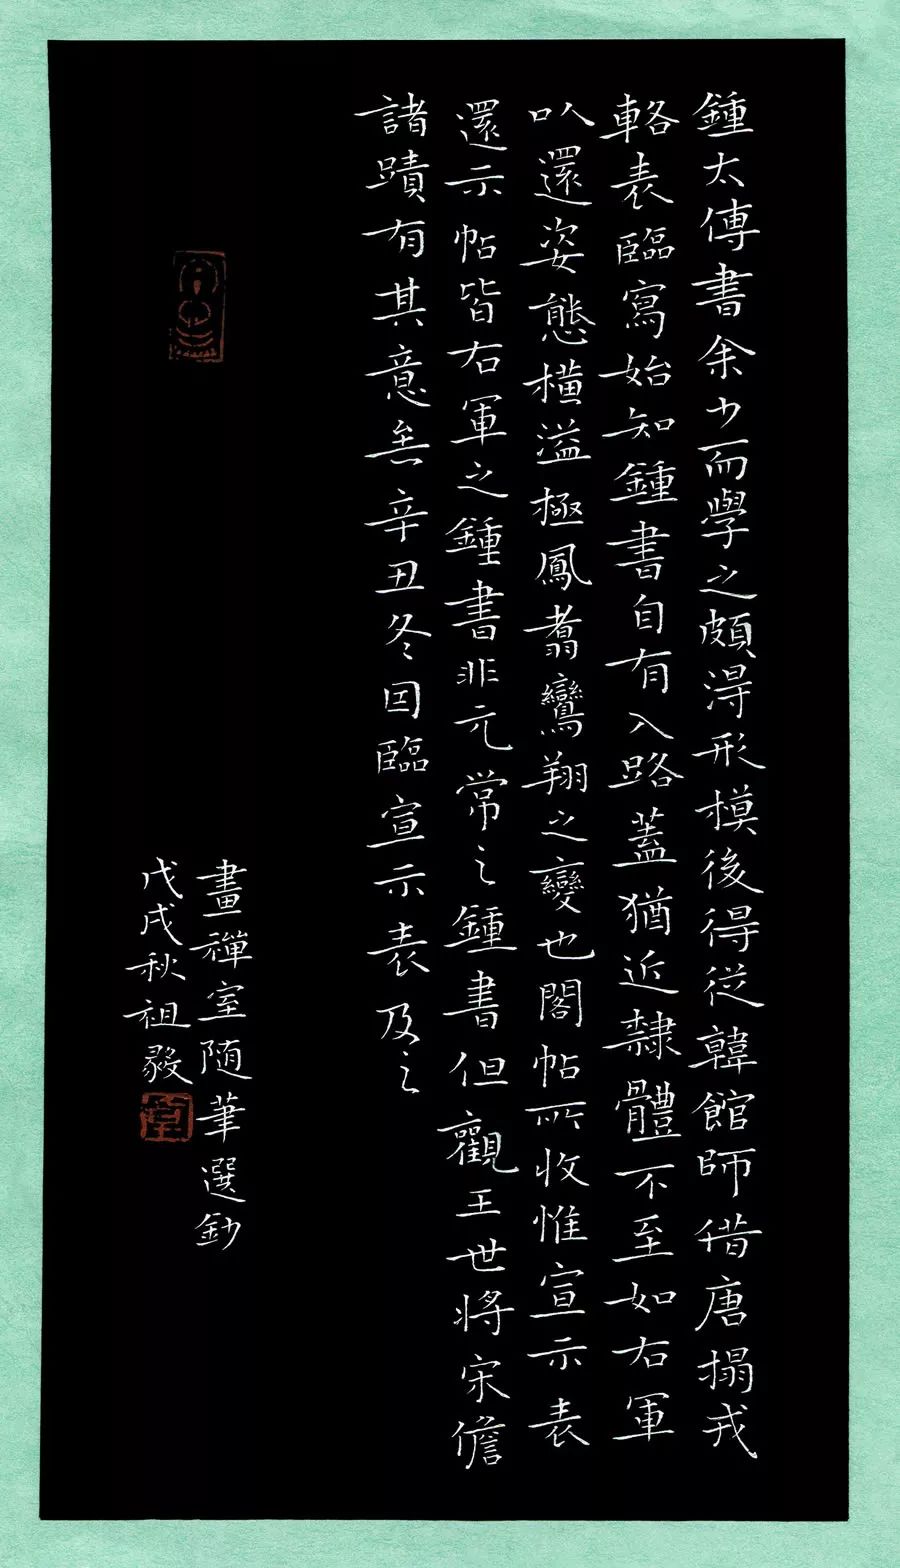 鍾太傅書余少而學之頗淂形模後得從韓館師借唐搨戎
輅表臨寫始知鍾書自有入路蓋猶近隸體不至如右軍
㕥還姿態橫溢極鳳翥鸞翔之變也閣帖所收惟宣示表
還示帖皆右軍之鍾書非元常之鍾書但觀王世將宋儋
諸蹟有其意矣辛丑冬因臨宣示表及之
畫禪室随筆選鈔
戊戌秋祖毅